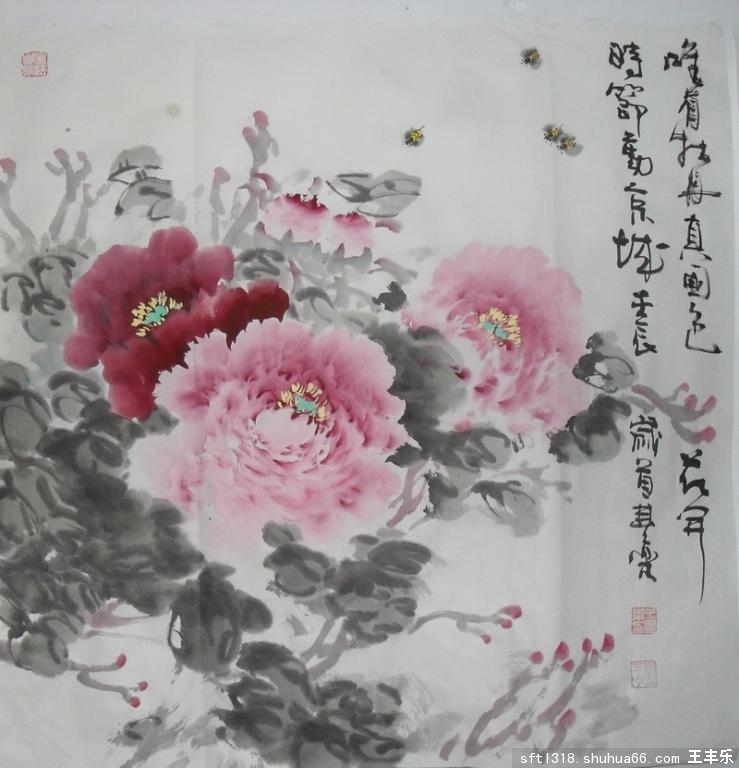 唯有牡丹真国色 花開
時節動京城 壬辰
歲首其樂
sft1318.shuhua66.com 王丰乐